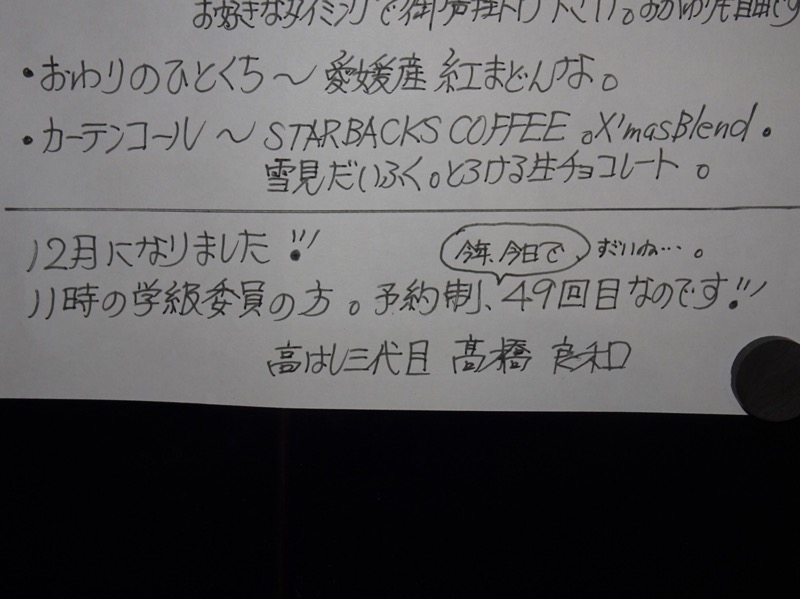 お好きなタイミングで御声掛け下さい。おかわり自由です
・おわりのひとくち〜愛媛産 紅まどんな。
・カーテンコール〜STARBACKS COFFEE。X'masBlend。
雪見だいふく。とろける生チョコレート。
12月になりました!!!
今年、今日で、すごいね…。
11時の学級委員の方。予約制、49回目なのです!!!
高はし三代目 髙橋 良和